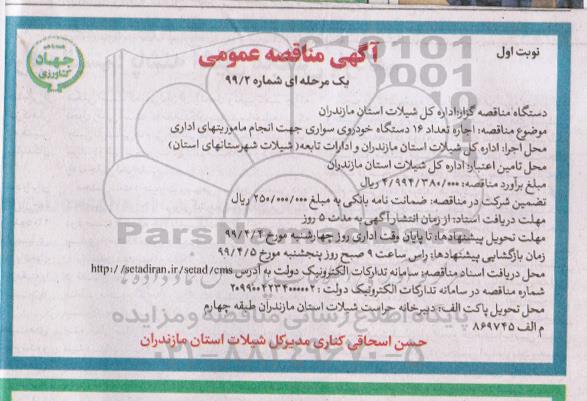 نوبت اول
آگهی مناقصه عمومی
یک مرحله ای شماره ۹۹/۲
جهاد کشاورزی
دستگاه مناقصه گزار:اداره کل شیلات استان مازندران
موضوع مناقصه: اجاره تعداد ۱۶ دستگاه خودروی سواری جهت انجام ماموریتهای اداری
محل اجرا: اداره کل شیلات استان مازندران و ادارات تابعه( شیلات شهرستانهای استان)
محل تامین اعتبار: اداره کل شیلات استان مازندران
مبلغ برآورد مناقصه: ۴/۹۹۴/۳۸۰/۰۰۰ ریال
تضمین شرکت در مناقصه: ضمانت نامه بانکی به مبلغ ۲۵۰/۰۰۰/۰۰۰ ریال
مهلت دریافت اسناد: از زمان انتشار آگهی به مدت ۵ روز
مهلت تحویل پیشنهادها: تا پایان وقت اداری روز چهارشنبه مورخ ۹۹/۴/۴
زمان بازگشایی پیشنهادها: راس ساعت ۹ صبح روز پنجشنبه مورخ ۹۹/۴/۵
محل دریافت اسناد مناقصه: سامانه تدارکات الکترونیک دولت به آدرس http://setadiran.ir/setad/cms
شماره مناقصه در سامانه تدارکات الکترونیک دولت : ۲۰۹۹۰۰۴۲۳۴۰۰۰۰۰۲
محل تحویل پاکت الف: دبیرخانه حراست شیلات استان مازندران طبقه چهارم
م الف ۸۶۹۷۴۵
حسن اسحاقی کناری مدیرکل شیلات استان مازندران